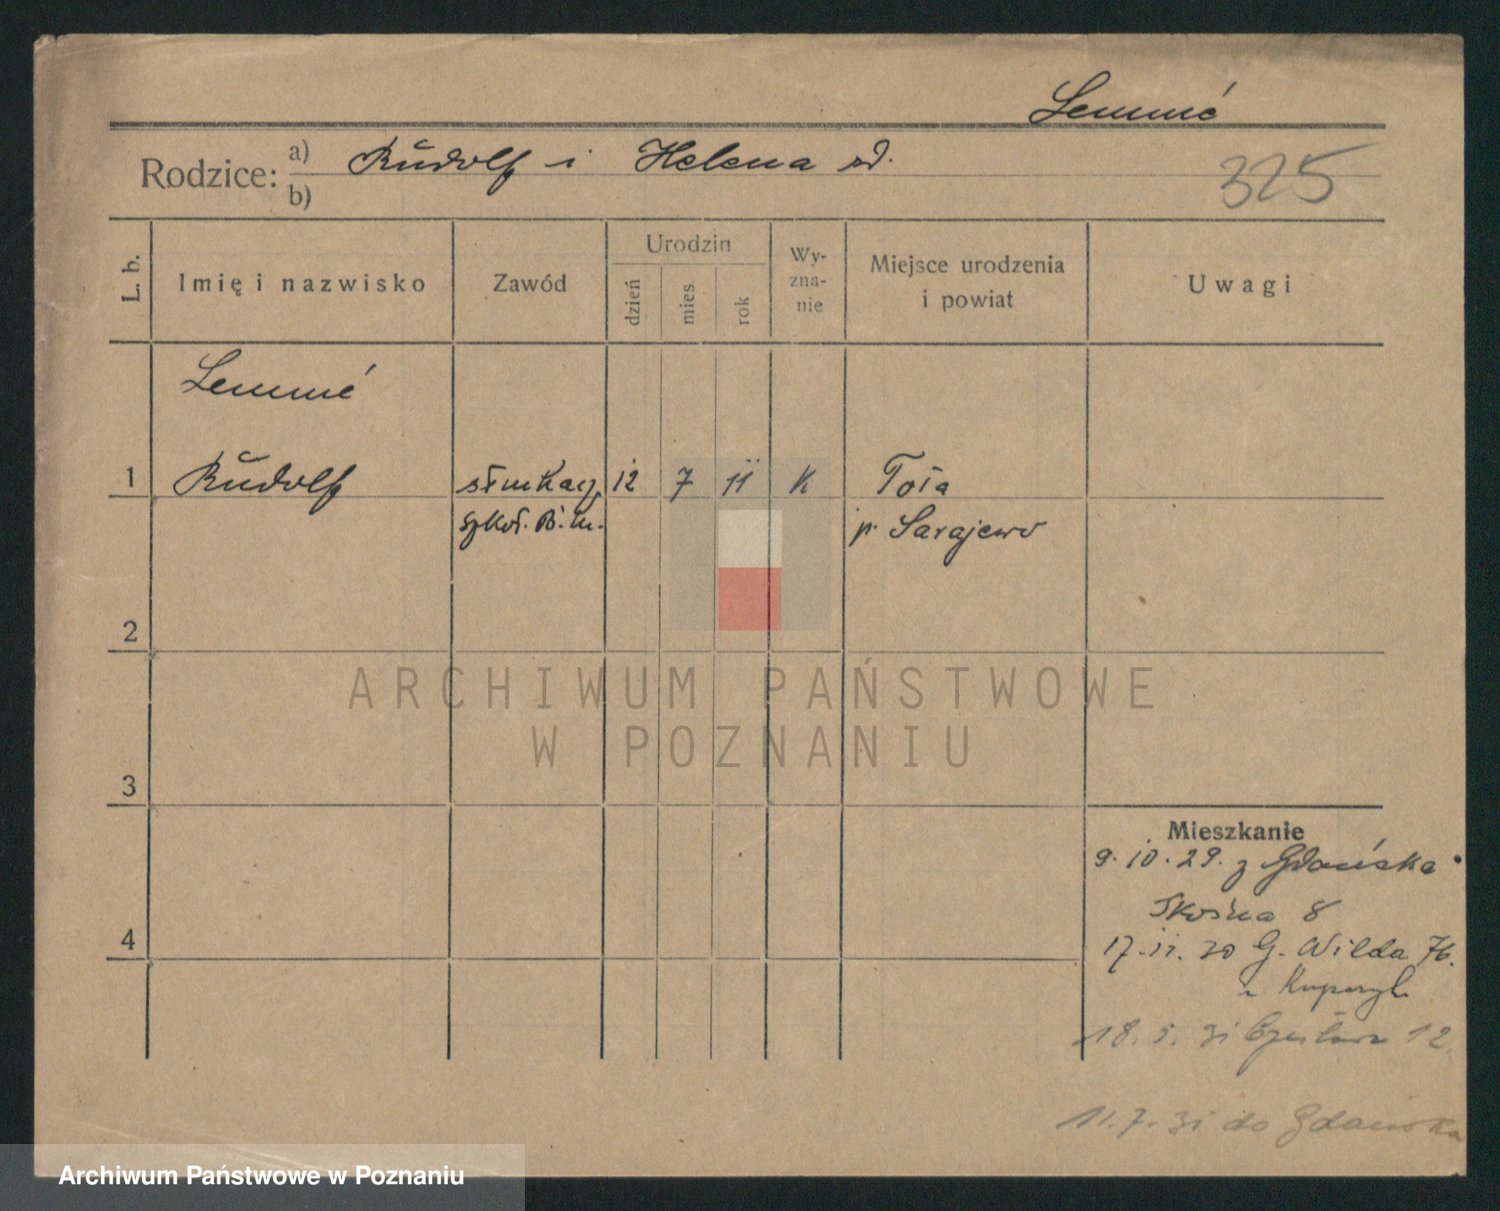 Lemmé
Rodzice: a) Rudolf i Helena
b)
325
L. b. Imię i nazwisko Zawód Urodzin dzień mies. rok Wy-zna-nie Miejsce urodzenia i powiat Uwagi
Lemmé
1 Rudolf słuchacz 12 7 11 K Foča
szkoł. B. M. p. Sarajewo
2
ARCHIWUM PAŃSTWOWE
W POZNANIU
3
Mieszkanie
9.10.29. z Gdańska
Skośna 8
4
17.11.30 G. Wilda 76.
18.5.31 12
11.7.31 do Gdańska
Archiwum Państwowe w Poznaniu